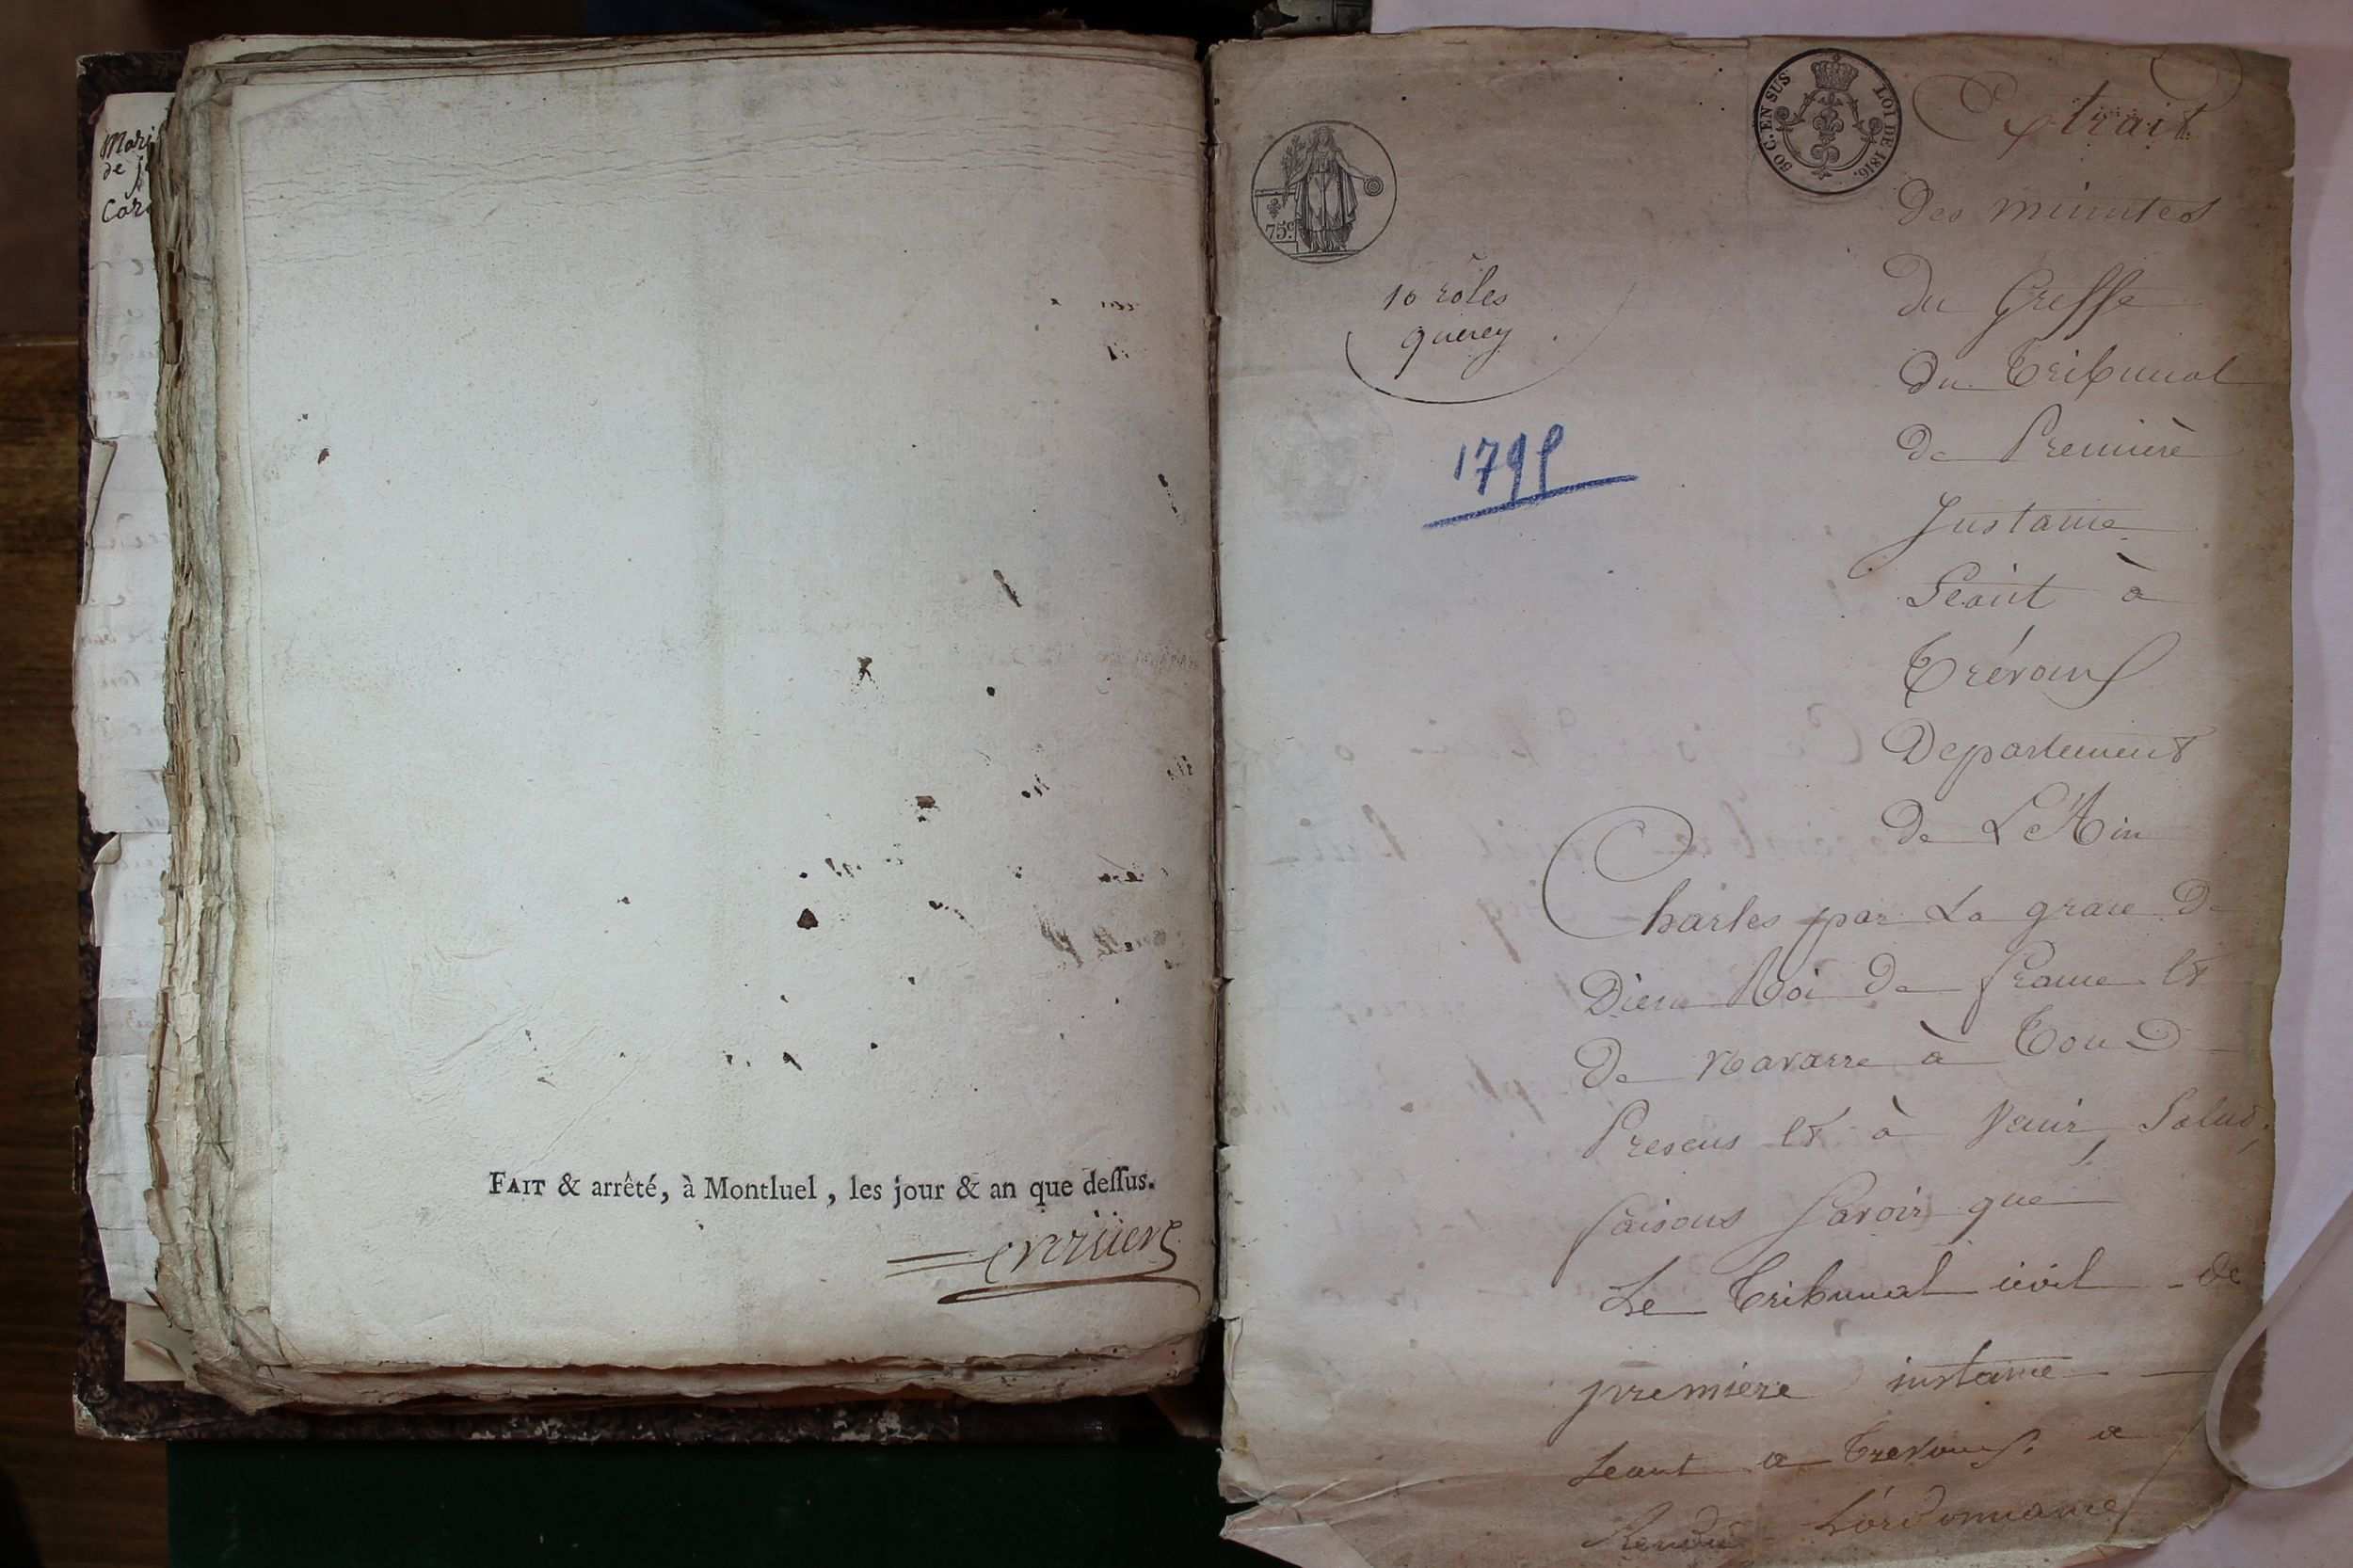 Mari
de
Car
FAIT & arrêté, à Montluel, les jour & an que deſſus.
75c.
50 C. EN SUS
LOI DE 1816.
10 rôles
querey
179
Extrait
des minutes
du Greffe
du Tribunal
de Premiere
Instance
Séant à
Trévoux
Departement
de L'Ain
Charles par La grace de
Dieu Roi de france et
de Navarre à Tous
Presens et à Venir, Salut,
faisons Savoir que
Le Tribunal civil de
premiere instance
Seant a Trevoux a
Rendu L'ordonnance